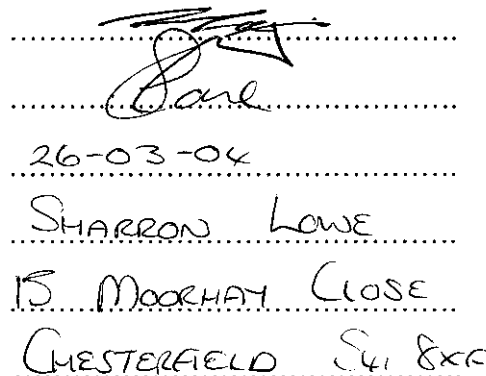 26-03-04
SHARRON LOWE
15 MOORHAY CLOSE
CHESTERFIELD S41